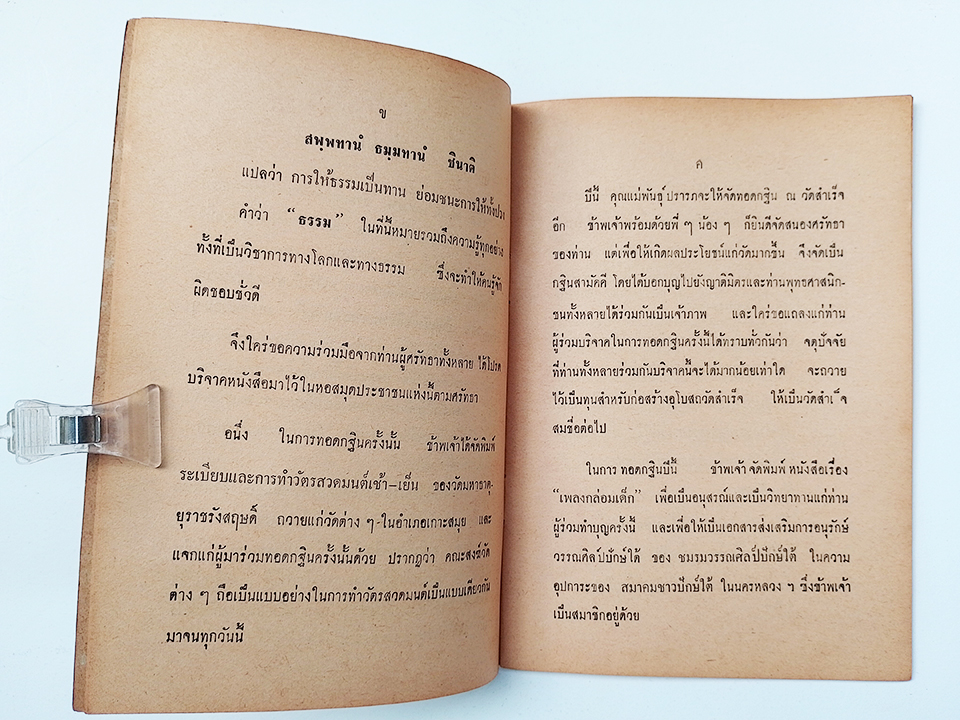 ข
สพฺพทานํ ธมฺมทานํ ชินาติ
แปลว่า การให้ธรรมเป็นทาน ย่อมชนะการให้ทั้งปวง
คำว่า “ธรรม” ในที่นี้หมายรวมถึงความรู้ทุกอย่าง
ทั้งที่เป็นวิชาการทางโลกและทางธรรม ซึ่งจะทำให้คนรู้จัก
ผิดชอบชั่วดี
จึงใคร่ขอความร่วมมือจากท่านผู้ศรัทธาทั้งหลาย ได้โปรด
บริจาคหนังสือมาไว้ในหอสมุดประชาชนแห่งนี้ตามศรัทธา
อนึ่ง ในการทอดกฐินครั้งนั้น ข้าพเจ้าได้จัดพิมพ์
ระเบียบและการทำวัตรสวดมนต์เช้า–เย็น ของวัดมหาธาตุ-
ยุราชรังสฤษดิ์ ถวายแก่วัดต่าง ๆ ในอำเภอเกาะสมุย และ
แจกแก่ผู้มาร่วมทอดกฐินครั้งนั้นด้วย ปรากฏว่า คณะสงฆ์วัด
ต่าง ๆ ถือเป็นแบบอย่างในการทำวัตรสวดมนต์เป็นแบบเดียวกัน
มาจนทุกวันนี้
ค
ปีนี้ คุณแม่พันธุ์ ปรารภจะให้จัดทอดกฐิน ณ วัดสำเร็จ
อีก ข้าพเจ้าพร้อมด้วยพี่ ๆ น้อง ๆ ก็ยินดีจัดสนองศรัทธา
ของท่าน แต่เพื่อให้เกิดผลประโยชน์แก่วัดมากขึ้น จึงจัดเป็น
กฐินสามัคคี โดยได้บอกบุญไปยังญาติมิตรและท่านพุทธศาสนิก-
ชนทั้งหลายได้ร่วมกันเป็นเจ้าภาพ และใคร่ขอแถลงแก่ท่าน
ผู้ร่วมบริจาคในการทอดกฐินครั้งนี้ได้ทราบทั่วกันว่า จตุปัจจัย
ที่ท่านทั้งหลายร่วมกันบริจาคนี้จะได้มากน้อยเท่าใด จะถวาย
ไว้เป็นทุนสำหรับก่อสร้างอุโบสถวัดสำเร็จ ให้เป็นวัดสำเร็จ
สมชื่อต่อไป
ในการ ทอดกฐินปีนี้ ข้าพเจ้า จัดพิมพ์ หนังสือเรื่อง
“เพลงกล่อมเด็ก” เพื่อเป็นอนุสรณ์และเป็นวิทยาทานแก่ท่าน
ผู้ร่วมทำบุญครั้งนี้ และเพื่อให้เป็นเอกสารส่งเสริมการอนุรักษ์
วรรณศิลป์ปักษ์ใต้ ของ ชมรมวรรณศิลป์ปักษ์ใต้ ในความ
อุปการะของ สมาคมชาวปักษ์ใต้ ในนครหลวง ฯ ซึ่งข้าพเจ้า
เป็นสมาชิกอยู่ด้วย